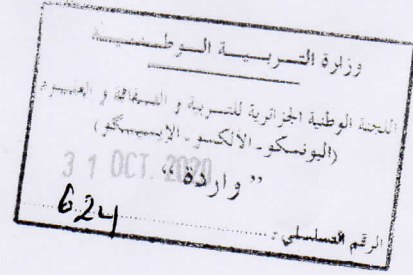 وزارة التربية الوطنية
اللجنة الوطنية الجزائرية للتربية و الثقافة و العلوم
(اليونسكو - الألكسو - الإيسيسكو)
31 OCT. 2020
" واردة "
الرقم التسلسلي : 624